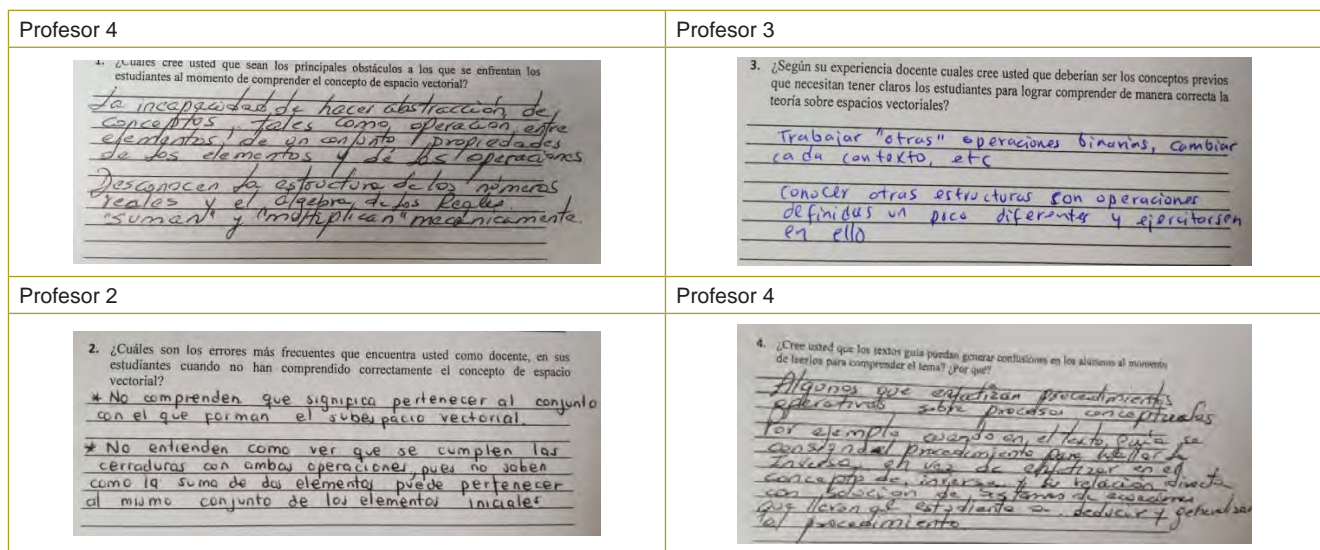 Profesor 4
1. ¿Cuáles cree usted que sean los principales obstáculos a los que se enfrentan los
estudiantes al momento de comprender el concepto de espacio vectorial?
La incapacidad de hacer abstracción de
conceptos, tales como operación entre
elementos, de un conjunto, propiedades
de los elementos y de las operaciones.
Desconocen la estructura de los números
reales y el álgebra de los Reales.
"suman" y "multiplican" mecánicamente.
Profesor 3
3. ¿Según su experiencia docente cuales cree usted que deberían ser los conceptos previos
que necesitan tener claros los estudiantes para lograr comprender de manera correcta la
teoría sobre espacios vectoriales?
Trabajar "otras" operaciones binarias, cambiar
cada contexto, etc
Conocer otras estructuras con operaciones
definidas un poco diferentes y ejercitarsen
en ello
Profesor 2
2. ¿Cuáles son los errores más frecuentes que encuentra usted como docente, en sus
estudiantes cuando no han comprendido correctamente el concepto de espacio
vectorial?
* No comprenden que significa pertenecer al conjunto
con el que forman el subespacio vectorial.
* No entienden como ver que se cumplen las
cerraduras con ambas operaciones, pues no saben
como la suma de dos elementos puede pertenecer
al mismo conjunto de los elementos iniciales
Profesor 4
4. ¿Cree usted que los textos guía puedan generar confusiones en los alumnos al momento
de leerlos para comprender el tema? ¿Por qué?
Algunos que enfatizan procedimientos
operativos, sobre procesos conceptuales
Por ejemplo cuando en el texto guía se
consigna el procedimiento para hallar la
inversa, en vez de enfatizar en el
concepto de inversa y su relación directa
con solución de sistemas de ecuaciones
que lleven al estudiante a deducir y generalizar
el procedimiento.